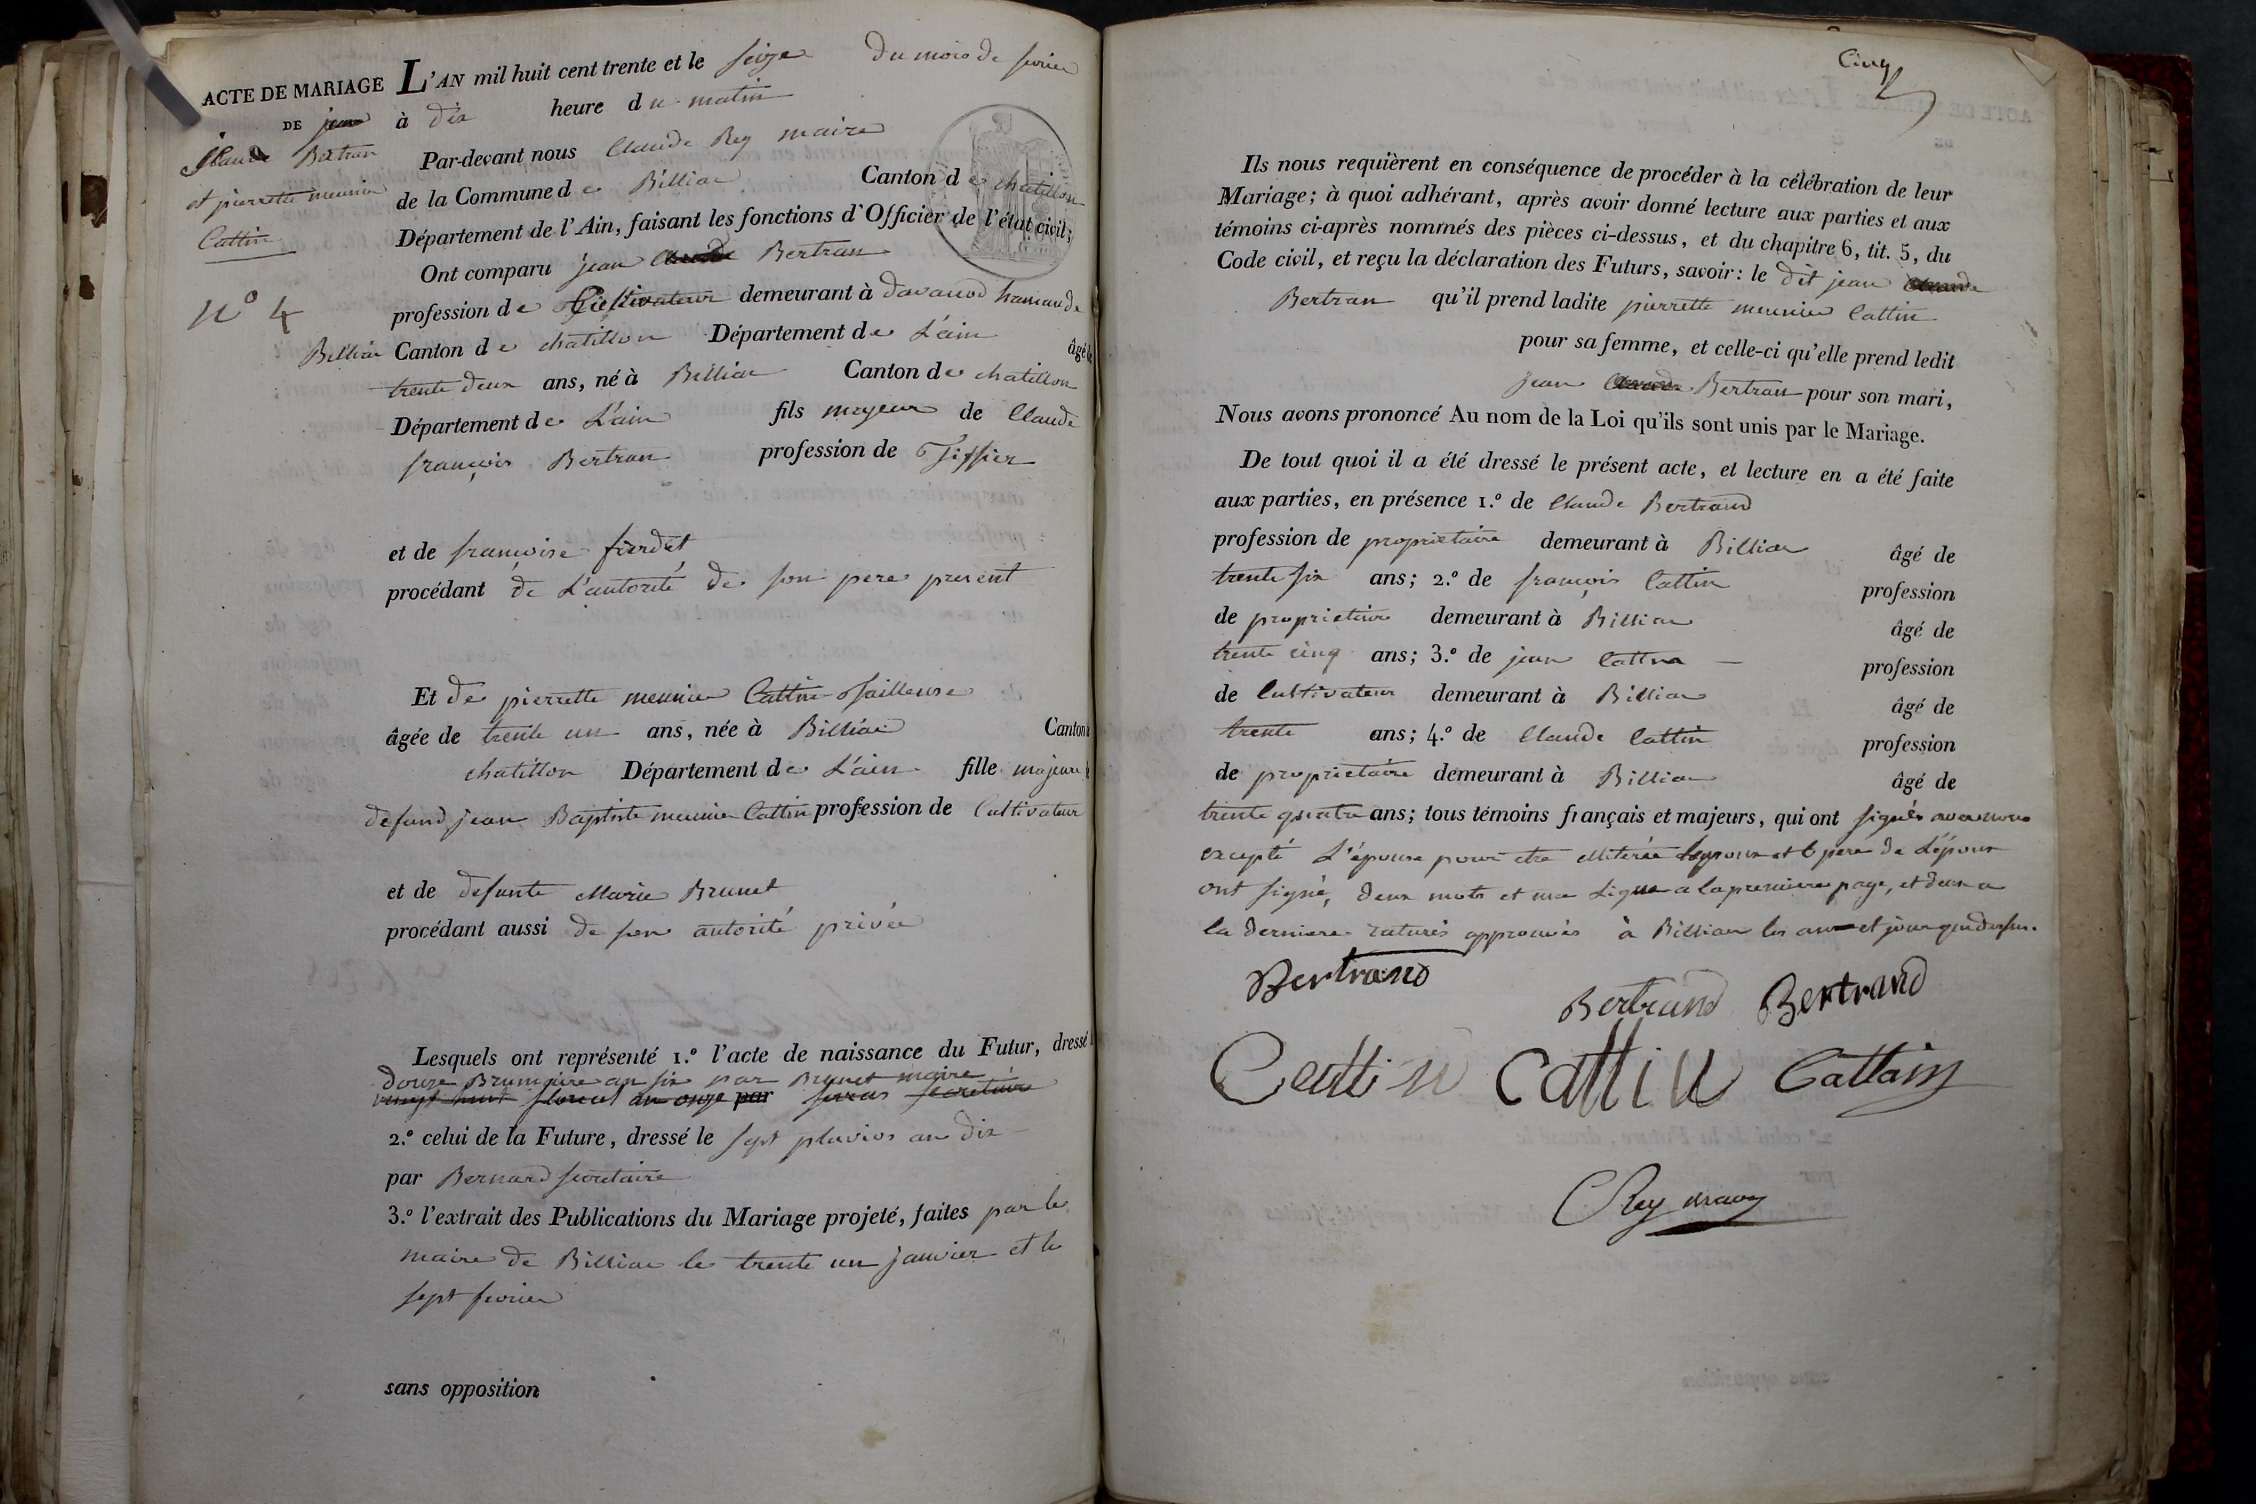 ACTE DE MARIAGE
DE jean
Claude Bertran
et pierrette meunier
Cattin
N° 4
L'AN mil huit cent trente et le seize du mois de fevrier
à dix heure du matin
Par-devant nous Claude Rey maire
de la Commune de Billiac Canton de chatillon
Département de l'Ain, faisant les fonctions d'Officier de l'état civil;
Ont comparu jean Claude Bertran
profession de Cultivateur demeurant à davanod hamau de
Billiac Canton de chatillon Département de L'ain âgé de
trente deux ans, né à Billiac Canton de chatillon
Département de L'ain fils mageur de Claude
françois Bertran profession de Tissier
et de françoise fierdet
procédant de L'autorité de son pere present
Et de pierrette meunier Cattin Tailleuse
âgée de trente un ans, née à Billiac Canton de
chatillon Département de L'ain fille majeure de
defund jean Baptiste meunier Cattin profession de Cultivateur
et de defunte Marie Brunet
procédant aussi de son autorité privée
Lesquels ont représenté 1.° l'acte de naissance du Futur, dressé
douze Brumaire an six par Brunet maire
vingt huit floreal an onze par secretaire
2.° celui de la Future, dressé le sept pluvios an dix
par Bernard secretaire
3.° l'extrait des Publications du Mariage projeté, faites par le
maire de Billiac le trente un janvier et le
sept fevrier
sans opposition
Cinq
Ils nous requièrent en conséquence de procéder à la célébration de leur
Mariage; à quoi adhérant, après avoir donné lecture aux parties et aux
témoins ci-après nommés des pièces ci-dessus, et du chapitre 6, tit. 5, du
Code civil, et reçu la déclaration des Futurs, savoir: le dit jean Claude
Bertran qu'il prend ladite pierrette meunier Cattin
pour sa femme, et celle-ci qu'elle prend ledit
jean Claude Bertran pour son mari,
Nous avons prononcé Au nom de la Loi qu'ils sont unis par le Mariage.
De tout quoi il a été dressé le présent acte, et lecture en a été faite
aux parties, en présence 1.° de Claude Bertrand
profession de proprietaire demeurant à Billiac âgé de
trente six ans; 2.° de françois Cattin profession
de proprietaire demeurant à Billiac âgé de
trente cinq ans; 3.° de jean Cattin profession
de Cultivateur demeurant à Billiac âgé de
trente ans; 4.° de Claude Cattin profession
de proprietaire demeurant à Billiac âgé de
trente quatre ans; tous témoins français et majeurs, qui ont signés avec nous
excepté L'épouse pour etre illiterée Lepoux et le pere de L'époux
ont signé, deux mots et une Ligne a la premiere page, et deux a
la derniere raturés approuvés à Billiac les an et jour que dessus.
Bertrand
Bertrand Bertrand
Cattin Cattin Cattain
C Rey maire